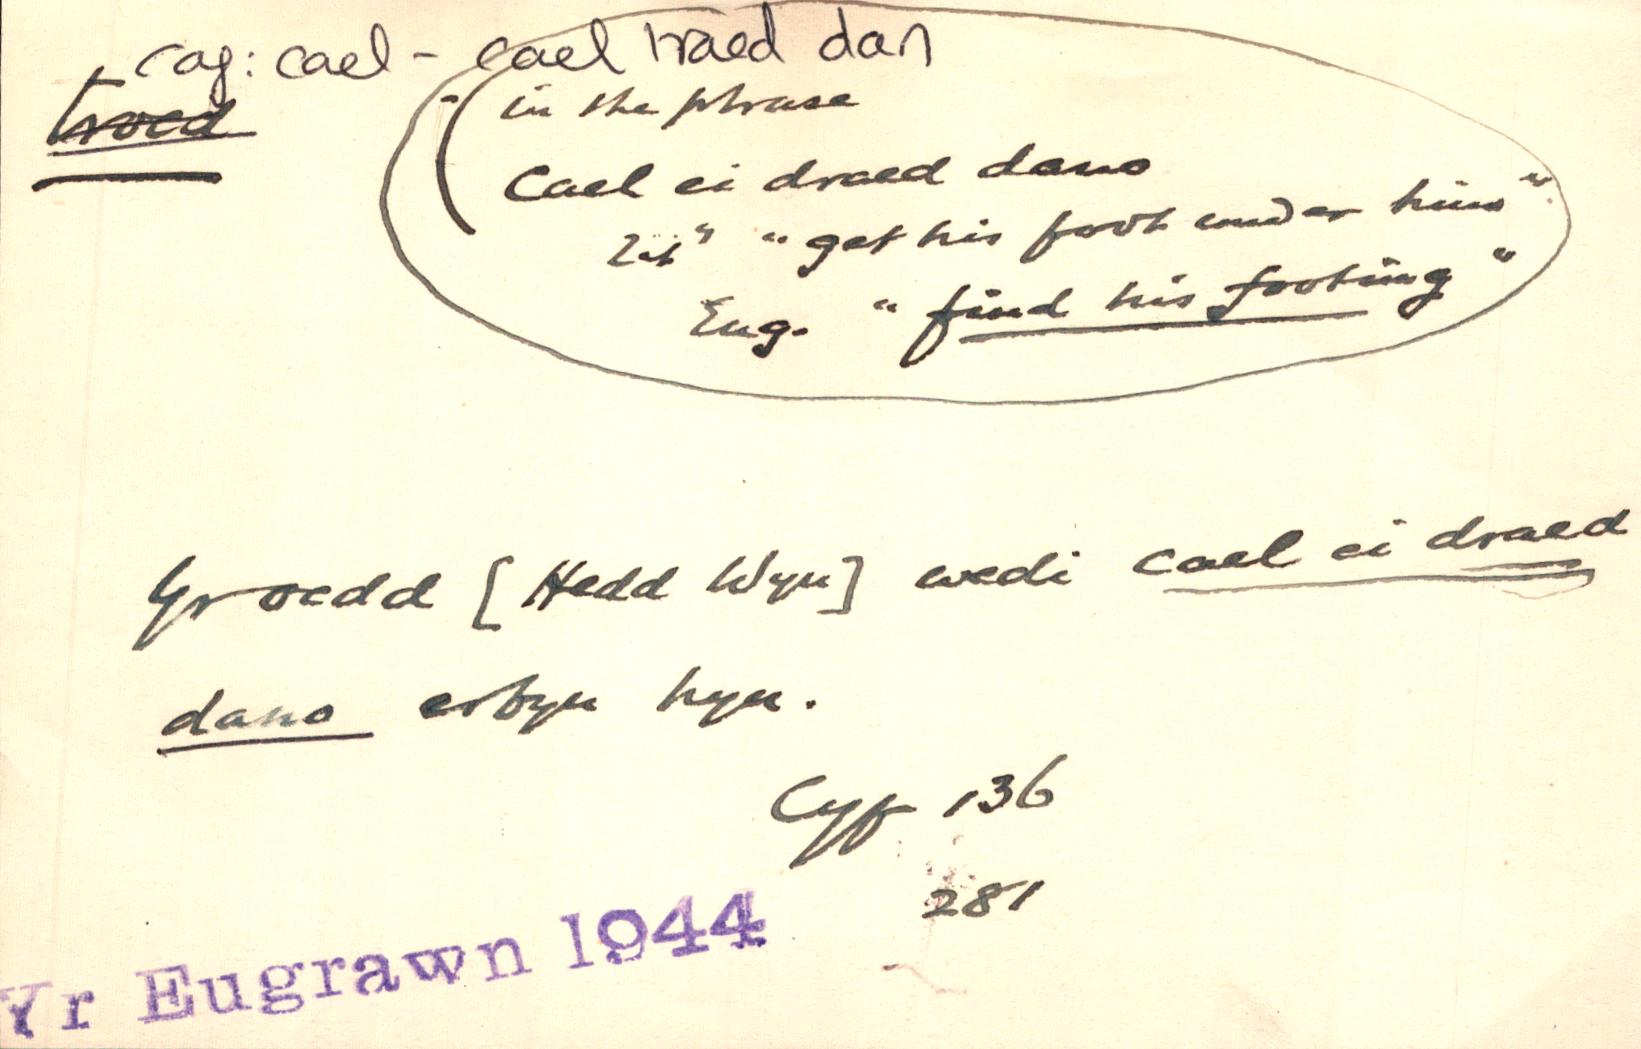 cag: cael - cael traed dan
troed
in the phrase
Cael ei draed dano
Lit" "get his foot under him".
Eng. "find his footing"
Yr oedd [Hedd Wyn] wedi cael ei draed
dano erbyn hyn.
Cyf 136
281
Yr Eugrawn 1944